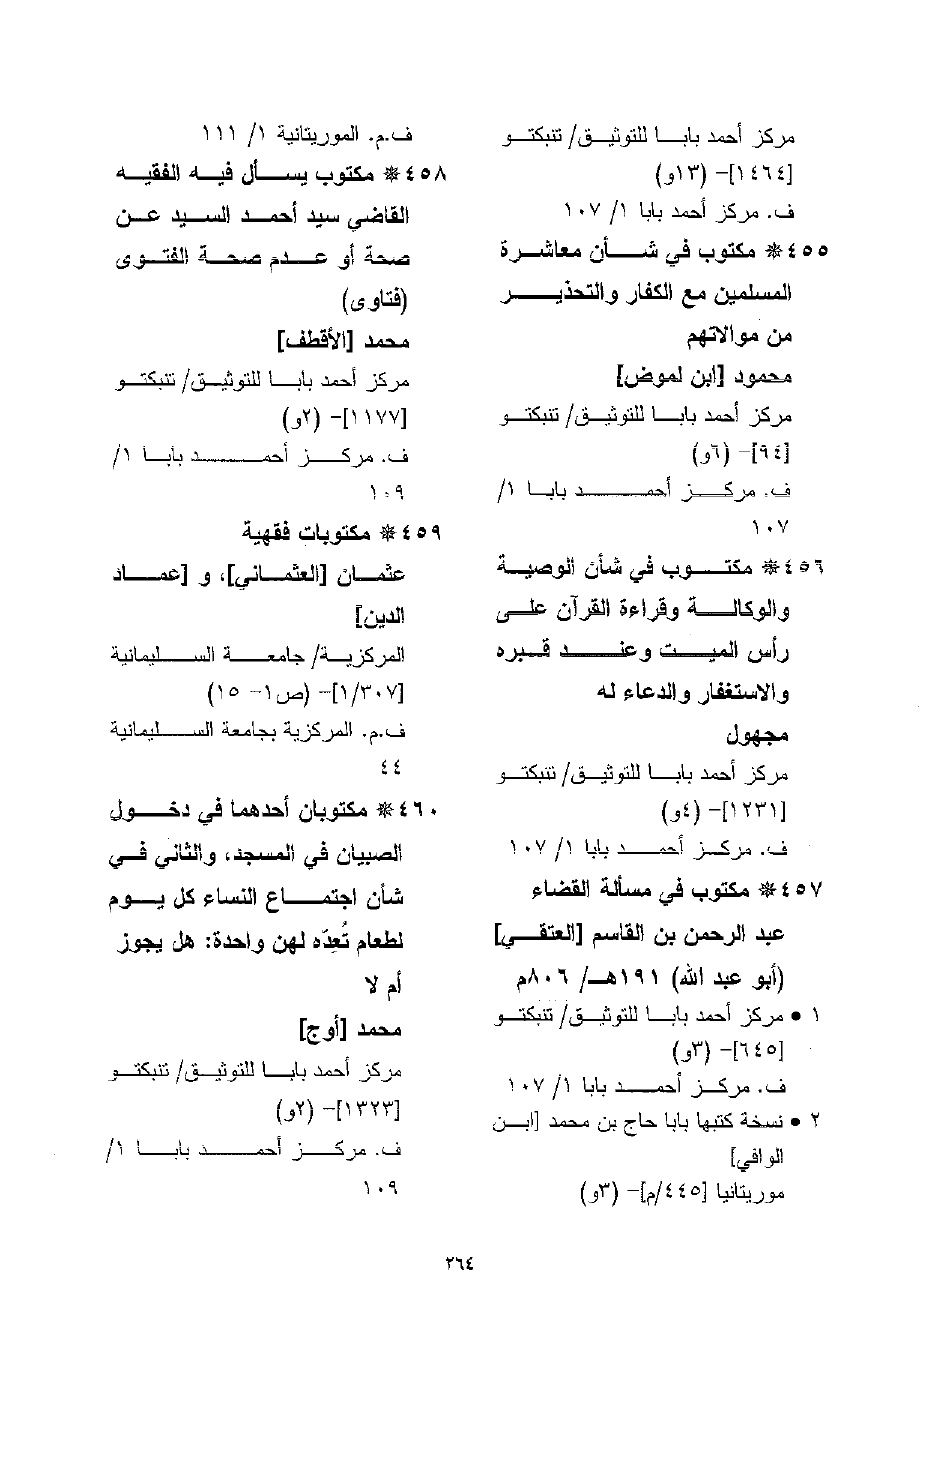 مركز أحمد بابا للتوثيق/ تنبكتو
[١٤٦٤]- (١٣و)
ف. مركز أحمد بابا ١/ ١٠٧
٤٥٥* مكتوب في شأن معاشرة
المسلمين مع الكفار والتحذير
من موالاتهم
محمود [ابن لموض]
مركز أحمد بابا للتوثيق/ تنبكتو
[٩٤]- (٦و)
ف. مركز أحمد بابا ١/
١٠٧
٤٥٦* مكتوب في شأن الوصية
والوكالة وقراءة القرآن على
رأس الميت وعند قبره
والاستغفار والدعاء له
مجهول
مركز أحمد بابا للتوثيق/ تنبكتو
[١٢٣١]- (٤و)
ف. مركز أحمد بابا ١/ ١٠٧
٤٥٧* مكتوب في مسألة القضاء
عبد الرحمن بن القاسم [العتقي]
(أبو عبد الله) ١٩١هـ/ ٨٠٦م
١ • مركز أحمد بابا للتوثيق/ تنبكتو
[٦٤٥]- (٣و)
ف. مركز أحمد بابا ١/ ١٠٧
٢ • نسخة كتبها بابا حاج بن محمد [ابن
الوافي]
موريتانيا [٤٤٥/م]- (٣و)
ف.م. الموريتانية ١/ ١١١
٤٥٨* مكتوب يسأل فيه الفقيه
القاضي سيد أحمد السيد عن
صحة أو عدم صحة الفتوى
(فتاوى)
محمد [الأقطف]
مركز أحمد بابا للتوثيق/ تنبكتو
[١١٧٧]- (٢و)
ف. مركز أحمد بابا ١/
١٠٩
٤٥٩* مكتوبات فقهية
عثمان [العثماني]، و [عماد
الدين]
المركزية/ جامعة السليمانية
[١/٣٠٧]- (ص١- ١٥)
ف.م. المركزية بجامعة السليمانية
٤٤
٤٦٠* مكتوبان أحدهما في دخول
الصبيان في المسجد، والثاني في
شأن اجتماع النساء كل يوم
لطعام تُعِدّه لهن واحدة: هل يجوز
أم لا
محمد [أوج]
مركز أحمد بابا للتوثيق/ تنبكتو
[١٣٢٣]- (٢و)
ف. مركز أحمد بابا ١/
١٠٩
٢٦٤